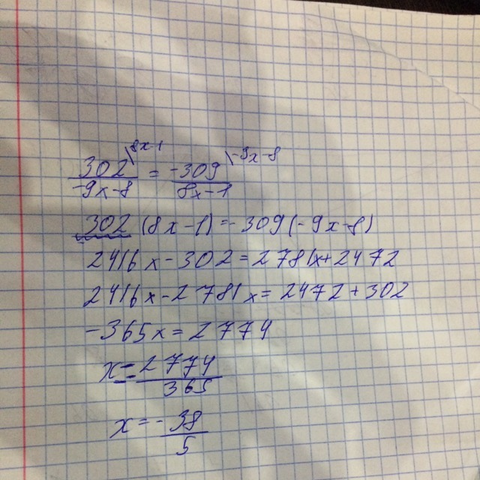 302 \8x-1 = -309 \-9x-8
-9x-8 8x-1
302 (8x-1) = -309 (-9x-8)
2416x-302=2781x+2472
2416x-2781x=2472+302
-365x=2774
x=-2774/365
x=-38/5